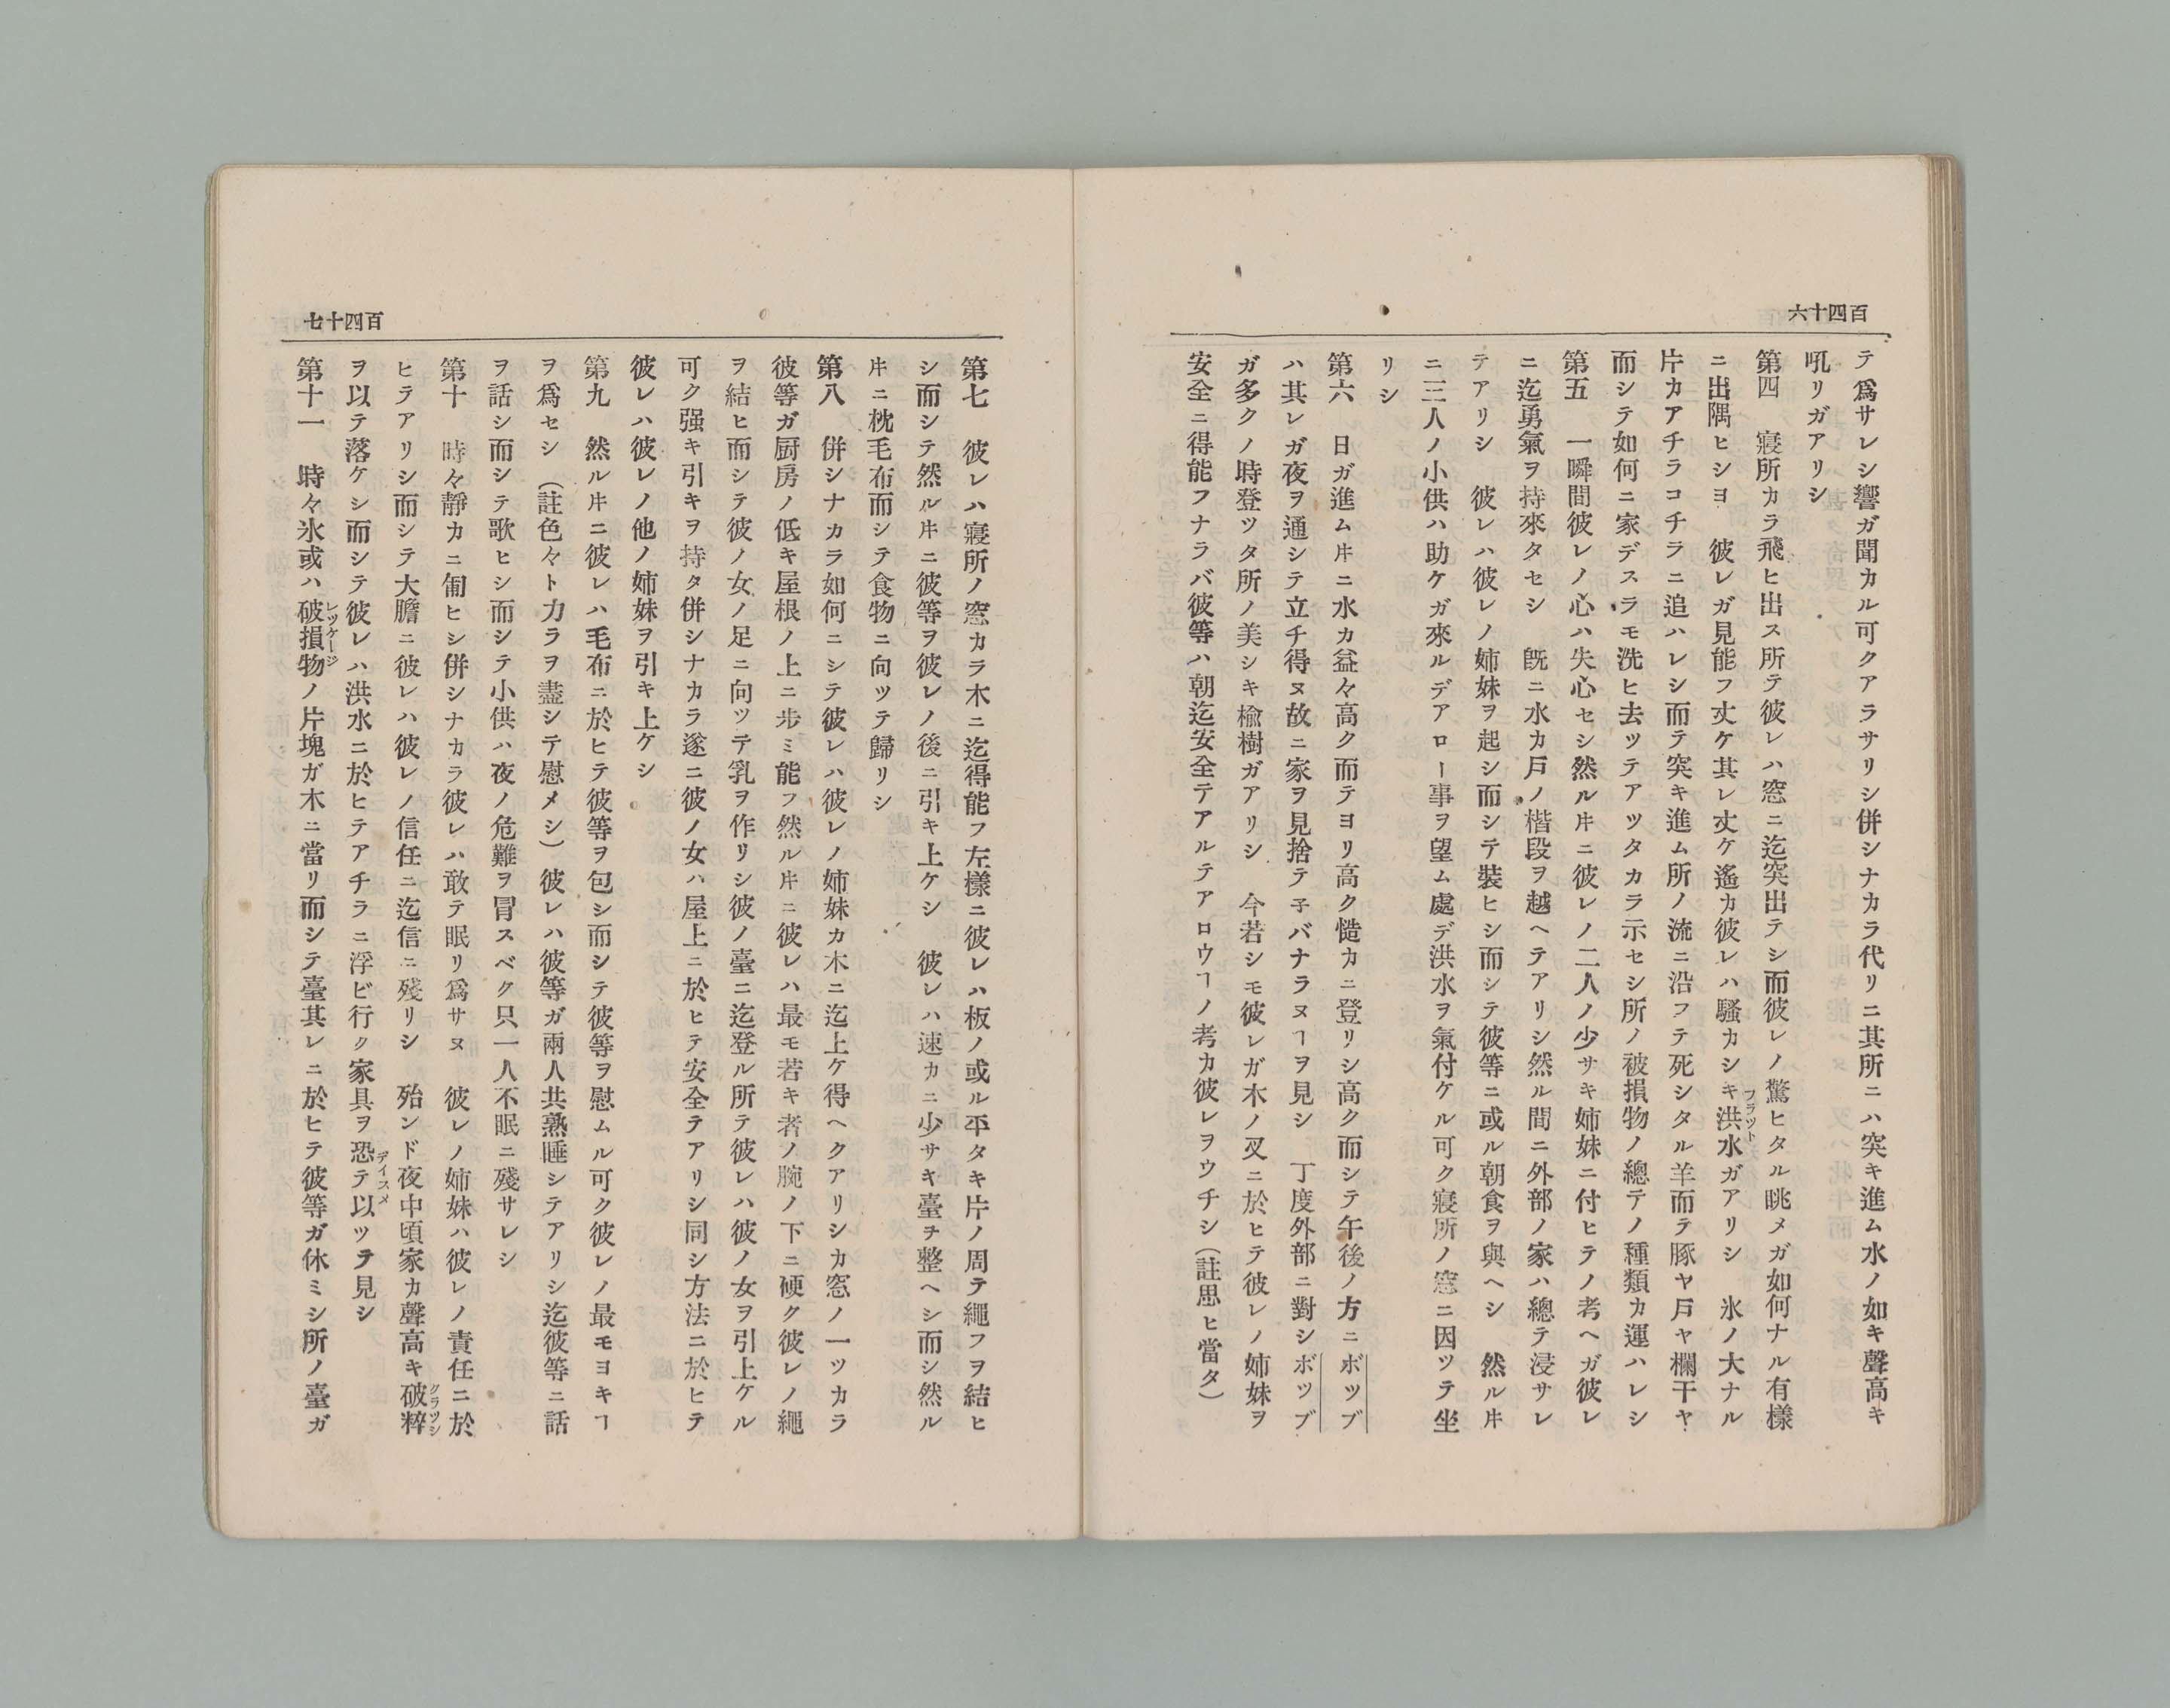 百四十六
テ爲サレシ響ガ聞カル可クアラサリシ併シナカラ代リニ其所ニハ突キ進ム水ノ如キ聲高キ
吼リガアリシ
第四　寢所カラ飛ヒ出ス所テ彼レハ窓ニ迄突出テシ而彼レノ驚ヒタル眺メガ如何ナル有樣
ニ出隅ヒシヨ　彼レガ見能フ丈ケ其レ丈ケ遙カ彼レハ騷カシキ洪水フラツトガアリシ　氷ノ大ナル
片カアチラコチラニ追ハレシ而テ突キ進ム所ノ流ニ沿フテ死シタル羊而テ豚ヤ戸ヤ欄干ヤ
而シテ如何ニ家デスラモ洗ヒ去ツテアツタカラ示セシ所ノ被損物ノ總テノ種類カ運ハレシ
第五　一瞬間彼レノ心ハ失心セシ然ルキニ彼レノ二人ノ少サキ姉妹ニ付ヒテノ考ヘガ彼レ
ニ迄勇氣ヲ持來タセシ　既ニ水カ戸ノ楷段ヲ越ヘテアリシ然ル間ニ外部ノ家ハ總テ浸サレ
テアリシ　彼レハ彼レノ姉妹ヲ起シ而シテ裝ヒシ而シテ彼等ニ或ル朝食ヲ與ヘシ　然ルキ
ニ三人ノ小供ハ助ケガ來ルデアロー事ヲ望ム處デ洪水ヲ氣付ケル可ク寢所ノ窓ニ因ツテ坐
リシ
第六　日ガ進ムキニ水カ益々高ク而テヨリ高ク慥カニ登リシ高ク而シテ午後ノ方ニボツブ
ハ其レガ夜ヲ通シテ立チ得ヌ故ニ家ヲ見捨テ子バナラヌヿヲ見シ　丁度外部ニ對シボツブ
ガ多クノ時登ツタ所ノ美シキ楡樹ガアリシ　今若シモ彼レガ木ノ叉ニ於ヒテ彼レノ姉妹ヲ
安全ニ得能フナラバ彼等ハ朝迄安全テアルテアロウヿノ考カ彼レヲウチシ（註思ヒ當タ）
百四十七
第七　彼レハ寢所ノ窓カラ木ニ迄得能フ左樣ニ彼レハ板ノ或ル平タキ片ノ周テ繩フヲ結ヒ
シ而シテ然ルキニ彼等ヲ彼レノ後ニ引キ上ケシ　彼レハ速カニ少サキ臺チ整ヘシ而シ然ル
キニ枕毛布而シテ食物ニ向ツテ歸リシ
第八　併シナカラ如何ニシテ彼レハ彼レノ姉妹カ木ニ迄上ケ得ヘクアリシカ窓ノ一ツカラ
彼等ガ厨房ノ低キ屋根ノ上ニ步ミ能フ然ルキニ彼レハ最モ若キ者ノ腕ノ下ニ硬ク彼レノ繩
ヲ結ヒ而シテ彼ノ女ノ足ニ向ツテ乳ヲ作リシ彼ノ臺ニ迄登ル所テ彼レハ彼ノ女ヲ引上ケル
可ク强キ引キヲ持タ併シナカラ遂ニ彼ノ女ハ屋上ニ於ヒテ安全テアリシ同シ方法ニ於ヒテ
彼レハ彼レノ他ノ姉妹ヲ引キ上ケシ
第九　然ルキニ彼レハ毛布ニ於ヒテ彼等ヲ包シ而シテ彼等ヲ慰ムル可ク彼レノ最モヨキヿ
ヲ爲セシ　（註色々ト力ラヲ盡シテ慰メシ）彼レハ彼等ガ兩人共熟睡シテアリシ迄彼等ニ話
ヲ話シ而シテ歌ヒシ而シテ小供ハ夜ノ危難ヲ冒スベク只一人不眠ニ殘サレシ
第十　時々靜カニ匍ヒシ併シナカラ彼レハ敢テ眠リ爲サヌ　彼レノ姉妹ハ彼レノ責任ニ於
ヒラアリシ而シテ大膽ニ彼レハ彼レノ信任ニ迄信ニ殘リシ　殆ンド夜中頃家カ聲高キ破粹クラツシ
ヲ以テ落ケシ而シテ彼レハ洪水ニ於ヒテアチラニ浮ビ行ク家具ヲ恐デイスメテ以ツテ見シ
第十一　時々氷或ハ破損物レツケージノ片塊ガ木ニ當リ而シテ臺其レニ於ヒテ彼等ガ休ミシ所ノ臺ガ